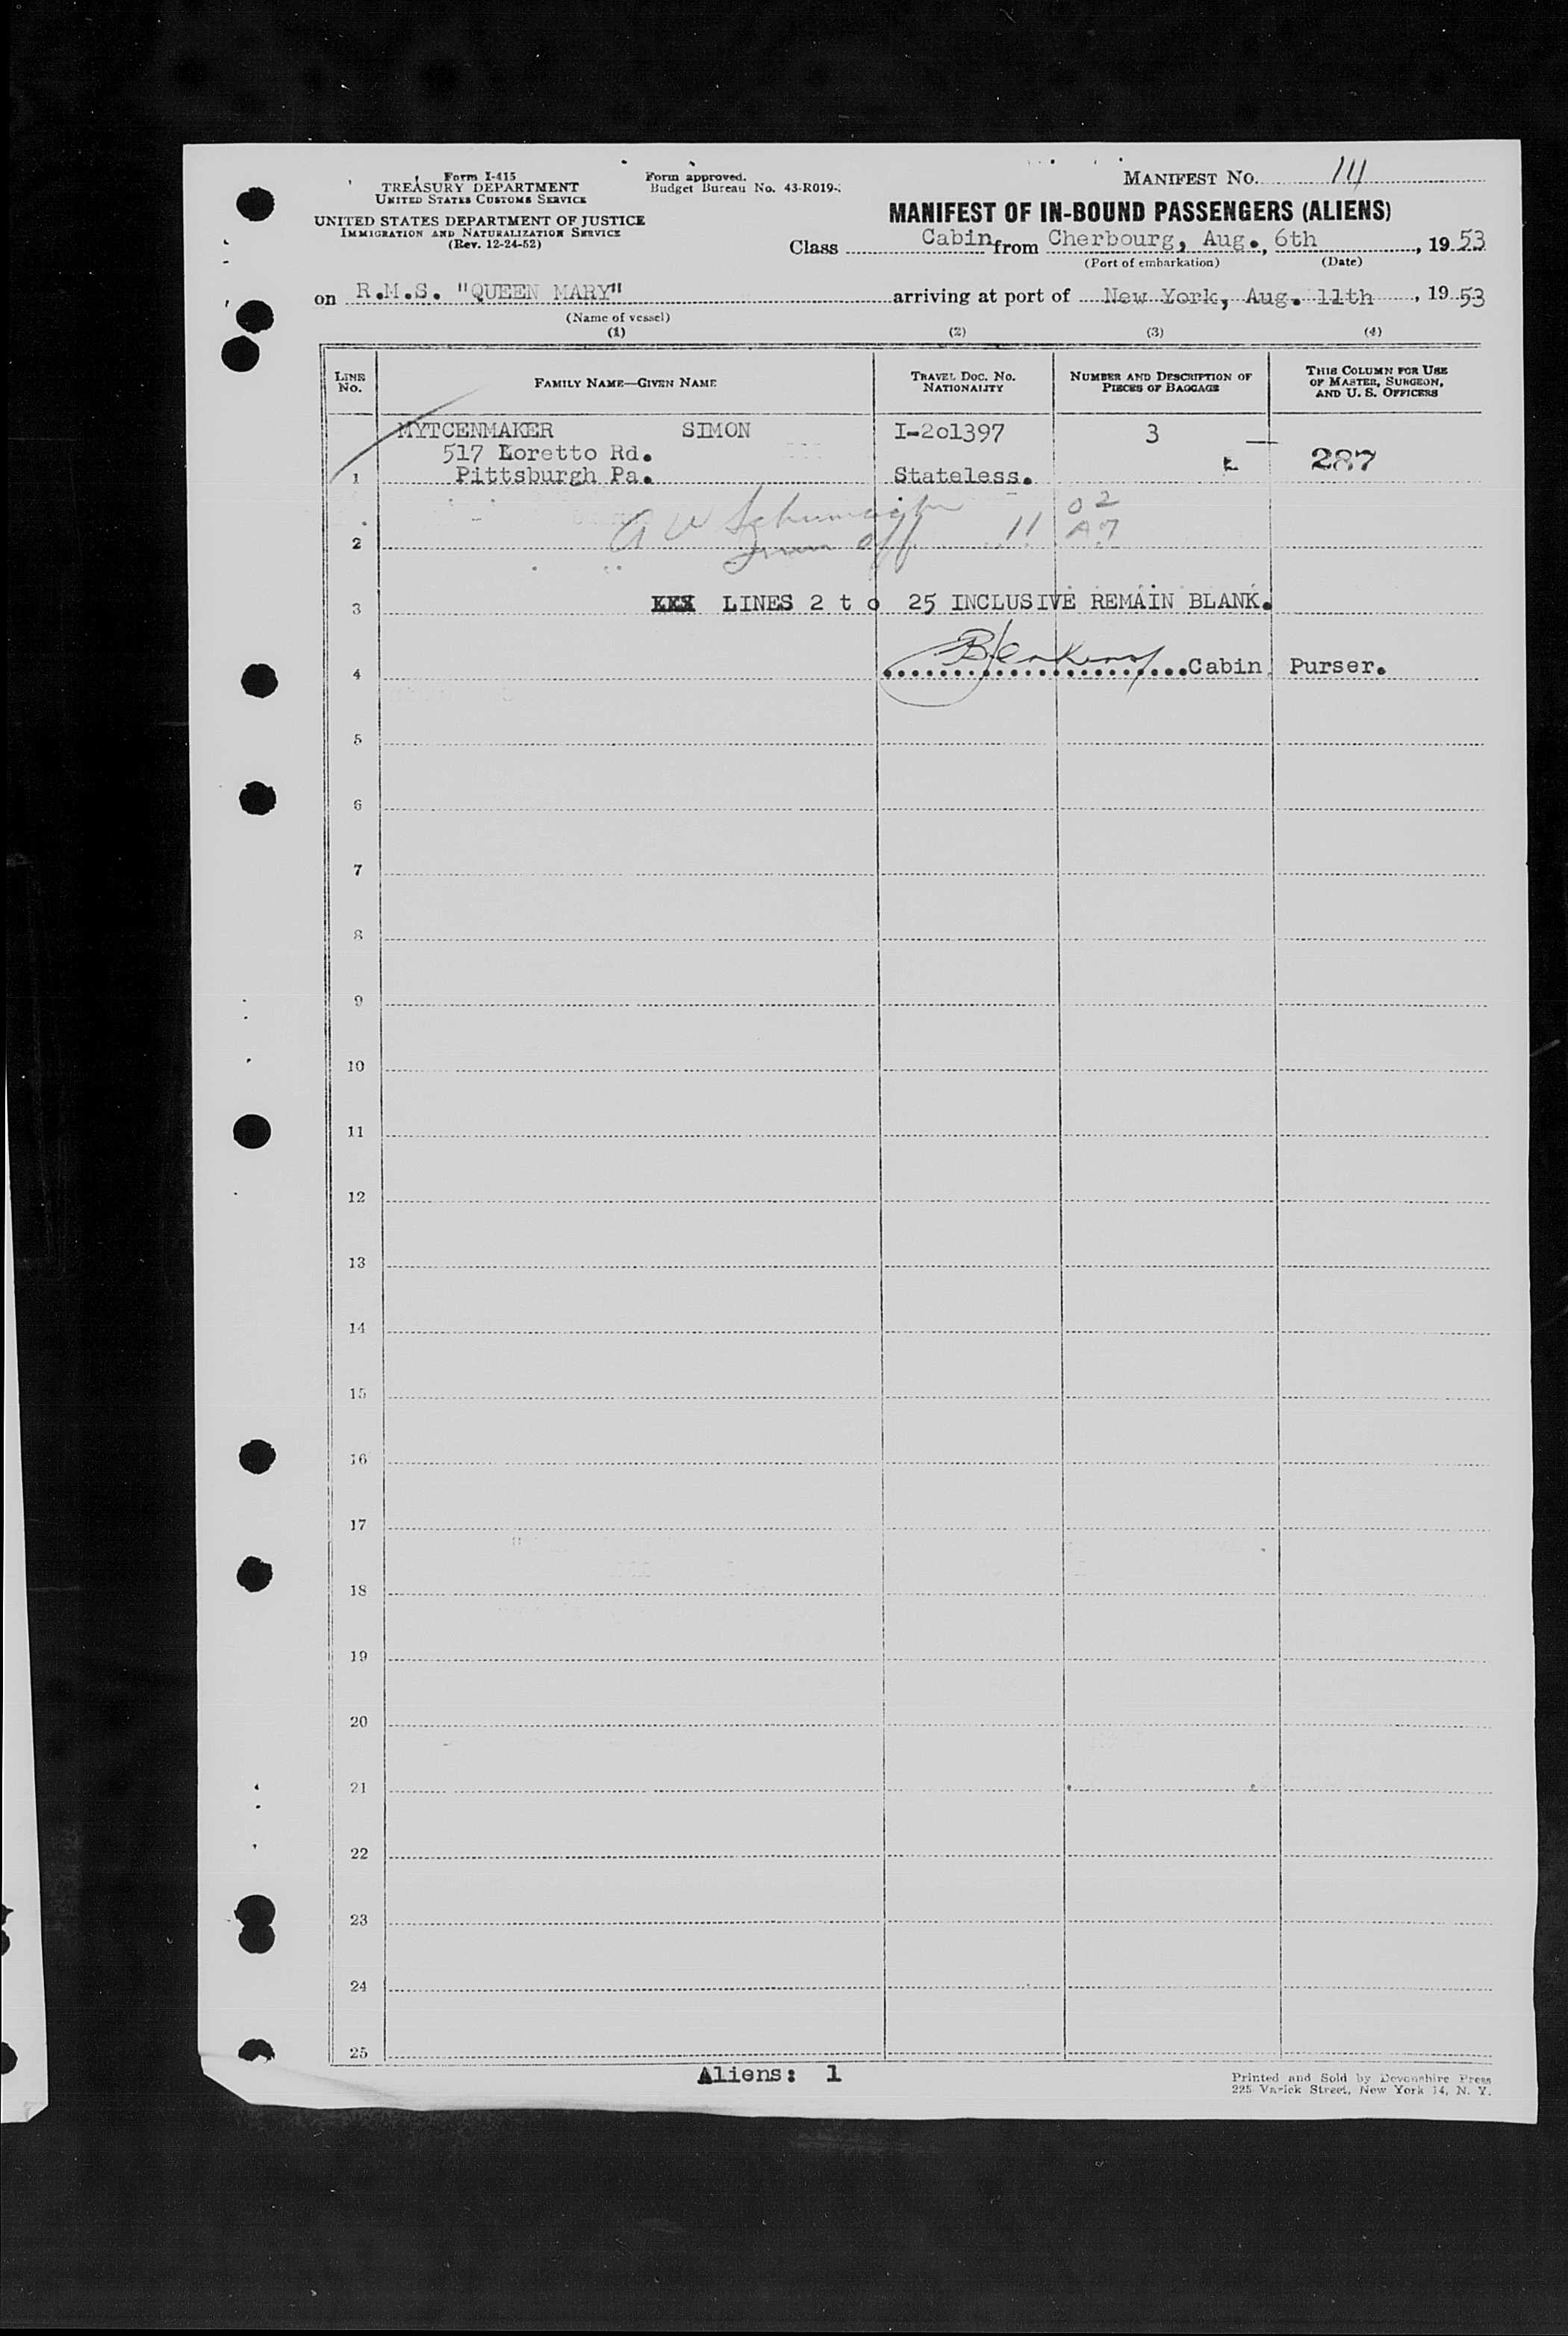 Form I-415
TREASURY DEPARTMENT
UNITED STATES CUSTOMS SERVICE
UNITED STATES DEPARTMENT OF JUSTICE
IMMIGRATION AND NATURALIZATION SERVICE
(Rev. 12-24-52)
Form approved.
Budget Bureau No. 43-R019-
MANIFEST NO. 111
MANIFEST OF IN-BOUND PASSENGERS (ALIENS)
Class Cabin from Cherbourg, Aug., 6th, 1953
(Port of embarkation) (Date)
on R.M.S. "QUEEN MARY" arriving at port of New York, Aug. 11th, 1953
(Name of vessel)
(1) (2) (3) (4)
LINE NO. FAMILY NAME—GIVEN NAME TRAVEL DOC. NO. NATIONALITY NUMBER AND DESCRIPTION OF PIECES OF BAGGAGE THIS COLUMN FOR USE OF MASTER, SURGEON, AND U. S. OFFICERS
MYTCENMAKER SIMON I-2o1397 3 —
517 Loretto Rd. 287
1 Pittsburgh Pa. Stateless.
02
11 A7
2 Imm Off
3 LINES 2 t o 25 INCLUSIVE REMAIN BLANK.
4 Cabin Purser.
5
6
7
8
9
10
11
12
13
14
15
16
17
18
19
20
21
22
23
24
25
Aliens: 1
Printed and Sold by Devonshire Press
225 Varick Street, New York 14, N. Y.